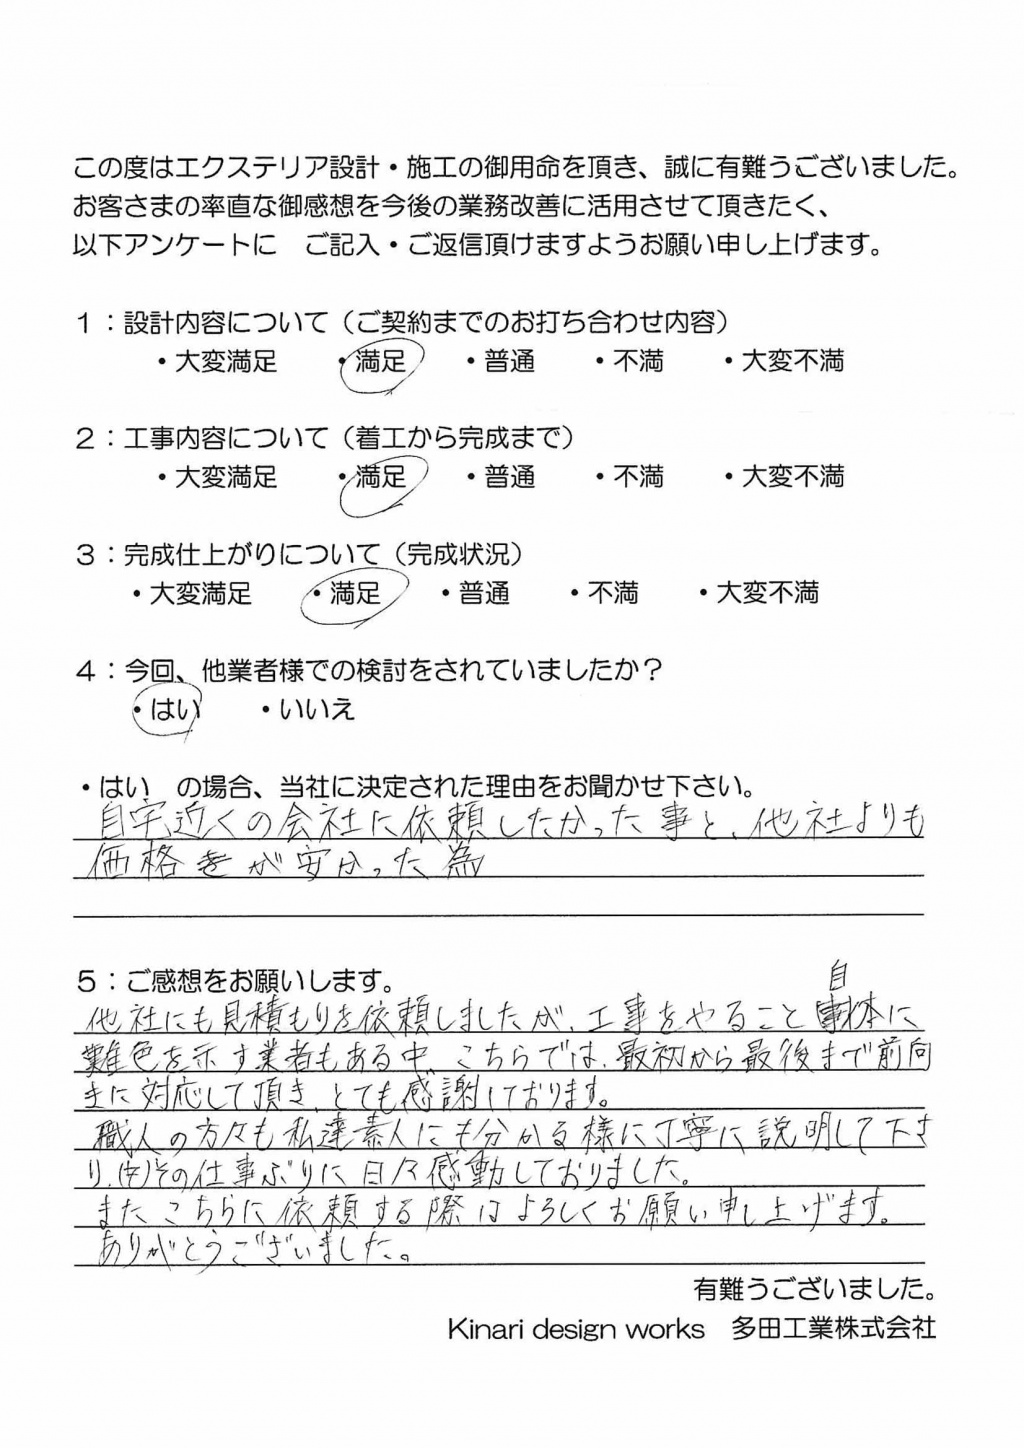 この度はエクステリア設計・施工の御用命を頂き、誠に有難うございました。
お客さまの率直な御感想を今後の業務改善に活用させて頂きたく、
以下アンケートに　ご記入・ご返信頂けますようお願い申し上げます。
1：設計内容について（ご契約までのお打ち合わせ内容）
・大変満足　・満足　・普通　・不満　・大変不満
2：工事内容について（着工から完成まで）
・大変満足　・満足　・普通　・不満　・大変不満
3：完成仕上がりについて（完成状況）
・大変満足　・満足　・普通　・不満　・大変不満
4：今回、他業者様での検討をされていましたか？
・はい　・いいえ
・はい　の場合、当社に決定された理由をお聞かせ下さい。
自宅近くの会社に依頼したかった事と、他社よりも
価格が安かった為
5：ご感想をお願いします。
他社にも見積もりを依頼しましたが、工事をやること自体に
難色を示す業者もある中、こちらでは、最初から最後まで前向
きに対応して頂き、とても感謝しております。
職人の方々も私達素人にも分かる様に丁寧に説明して下さ
り、その仕事ぶりに日々感動しておりました。
またこちらに依頼する際はよろしくお願い申し上げます。
ありがとうございました。
有難うございました。
Kinari design works　多田工業株式会社